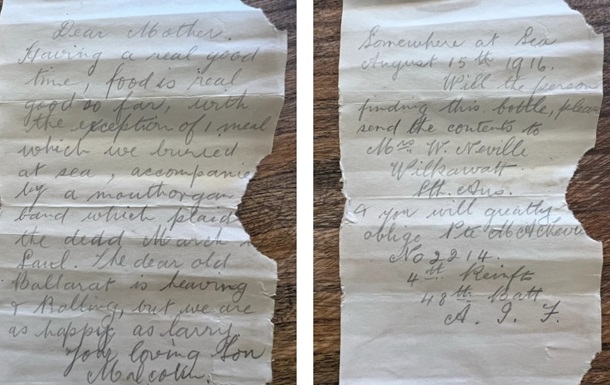 Dear Mother.
Having a real good
time, food is real
good so far, with
the exception of 1 meal
which we burried
at sea, accompanie
by a mouthorgan
band which plaid
the dedd March
Saul. The dear old
Ballarat is heaving
& Rolling, but we are
as happy as Larry
Your loving Son
Malcolm.
Somewhere at Sea
August 15th 1916.
Will the person
finding this bottle, please
send the contents to
Mrs W. Neville
Wilkawatt
Sth. Aus.
& you will greatly
oblige Pte
No 2214.
4th Reinfts
48th Batt
A. I. F.